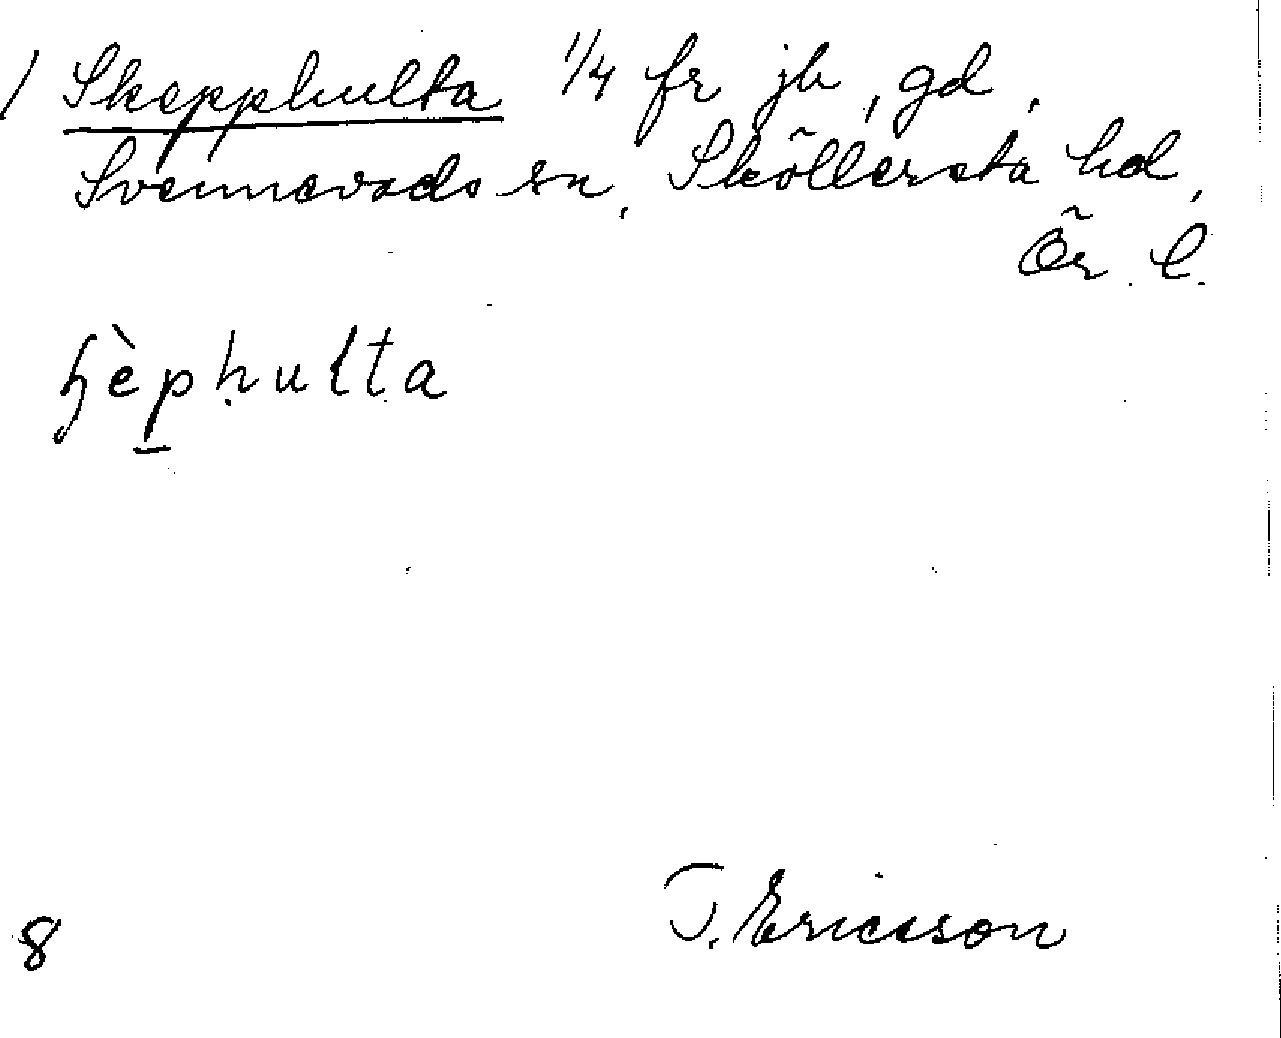 / Skepphulta 1/4 fr jb, gd,
Svennevads sn, Sköllersta hd,
Ör. l.
ɧèp̲ḥulta
8 T. Ericsson